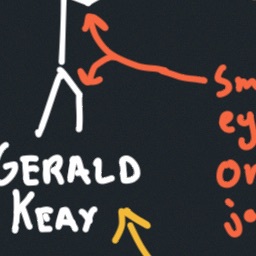 GERALD
KEAY
Sm
ey
On
jo